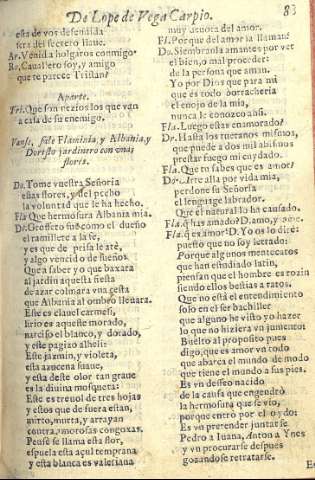 De Lope de Vega Carpio.
83
esta de vos defendida
sera del secreto llaue.
Ar. Venid a holgaros conmigo.
Ro. Cauallero soy, y amigo
que te parece Tristan?
Aparte.
Tri. Que son necios los que van
a casa de su enemigo.
Vanse, sale Flaminia, y Albania, y
Doristo jardinero con vnas
flores.
Do. Tome vuestra Señoria
estas flores, y del pecho
la voluntad que le ha hecho.
Fla. Que hermosura Albania mia.
Do. Grossero fue como el dueño
el ramillete a la fe,
y es que de prisa le atè,
y algo vencido de sueños.
Que a saber yo que baxara
al jardin aquesta siesta
de azar colmara vna cesta
que Albania al ombro lleuara.
Este es clauel carmesi,
lirio es aqueste morado,
narciso el blanco, y dorado,
y este pagizo alheli:
Este jazmin, y violeta,
esta azucena suaue,
y esta deste olor tan graue
es la diuina mosqueta:
Este es treuol de tres hojas
y estos que de fuera estan,
mirto, murta, y arrayan
contra amorosas congoxas.
Pense se llama esta flor,
espuela esta açul temprana
y esta blanca es valeriana
muy autora del amor.
Fl. Porque del amor la llaman?
Do. Siembranla amantes por ver
el bien, o mal proceder:
de la persona que aman.
Yo por Dios que para mi
que es todo borracheria
el enojo de la mia,
nunca le conozco assi.
Fla. Luego estas enamorado?
Do. Hasta los tuetanos mismos,
que puede a dos mil abismos
prestar fuego mi cuydado.
Fla. Que tu sabes que es amor?
Do. Arre alla por vida mia,
perdone su Señoria
el lenguage labrador.
Que el natural lo ha causado.
Fla. q has amado? D. amo, y amè.
Fla. q es amor? D. Yo os lo dirè:
puesto que no soy letrado:
Porque algunos mentecatos
que han estudiado latin,
piensan que el hombre es rozin
siendo ellos bestias a ratos.
Que no està el entendimiento
solo en el ser bachiller
que alguno he visto yo hazer
lo que no hiziera vn jumento:
Buelto al proposito pues
digo, que es amor vn todo
que abarca el mundo de modo
que tiene el mundo a sus pies.
Es vn desseo nacido
de la causa que engendrò
la hermosura que se viò,
porque entrò por el oydo:
Es vn pretender juntarse
Pedro a Iuana, Anton a Ynes
y vn procurarse despues
gozandose retratarse.